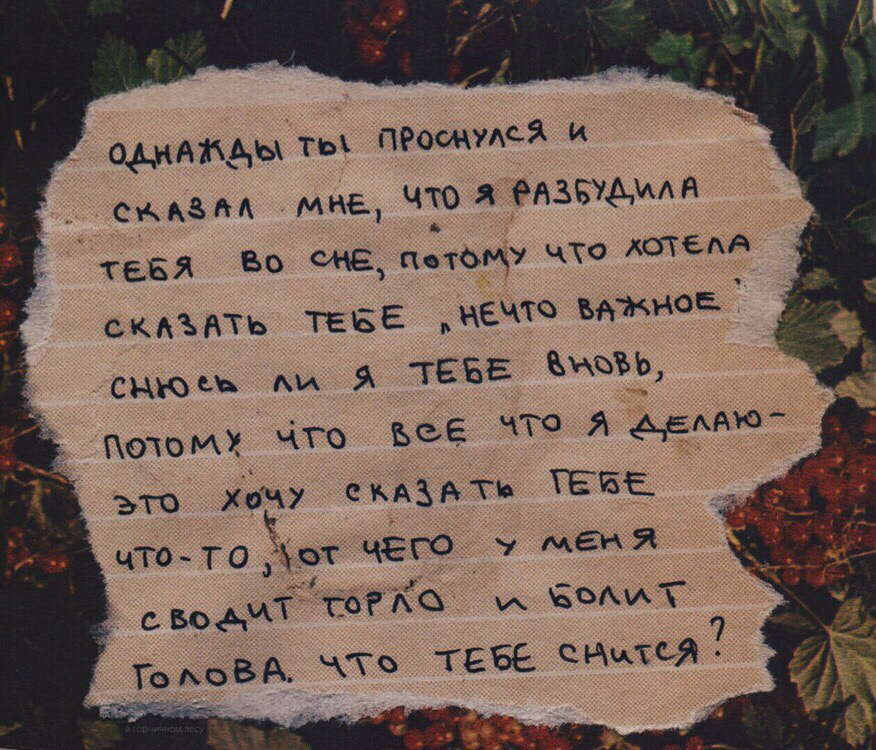 ОДНАЖДЫ ТЫ ПРОСНУЛСЯ И
СКАЗАЛ МНЕ, ЧТО Я РАЗБУДИЛА
ТЕБЯ ВО СНЕ, ПОТОМУ ЧТО ХОТЕЛА
СКАЗАТЬ ТЕБЕ „НЕЧТО ВАЖНОЕ"
СНЮСЬ ЛИ Я ТЕБЕ ВНОВЬ,
ПОТОМУ ЧТО ВСЕ ЧТО Я ДЕЛАЮ-
ЭТО ХОЧУ СКАЗАТЬ ТЕБЕ
ЧТО-ТО, ОТ ЧЕГО У МЕНЯ
СВОДИТ ГОРЛО И БОЛИТ
ГОЛОВА. ЧТО ТЕБЕ СНИТСЯ?
в горчичном лесу